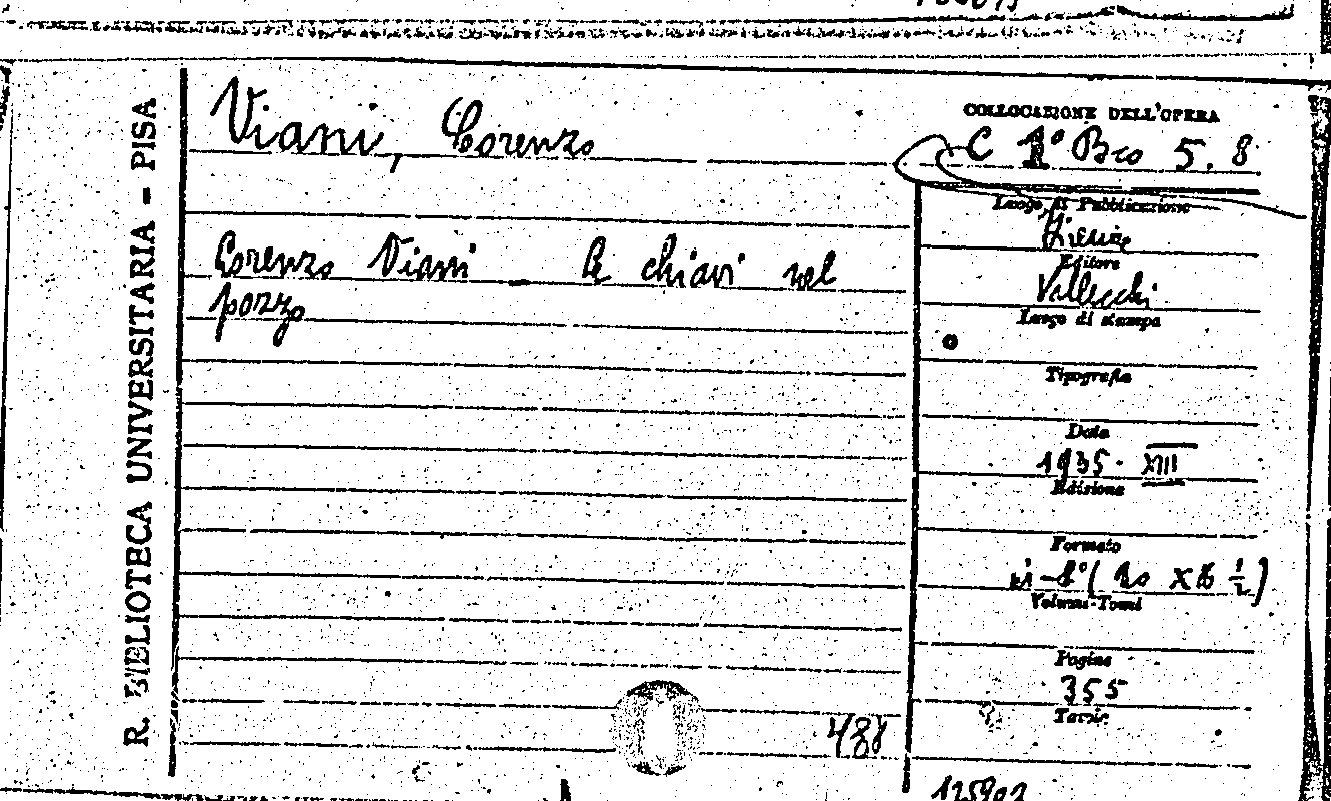 R. BIBLIOTECA UNIVERSITARIA - PISA
Viani, Lorenzo
Lorenzo Viani - Le chiavi nel
pozzo
COLLOCAZIONE DELL'OPERA
C 1° Bco 5. 8
Luogo di Pubblicazione
Firenze
Editore
Vallecchi
Luogo di stampa
Tipografia
Data
1935 - XIII
Edizione
Formato
in-8° (
Volumi-Tomi
Pagine
355
Tavole
488
125902